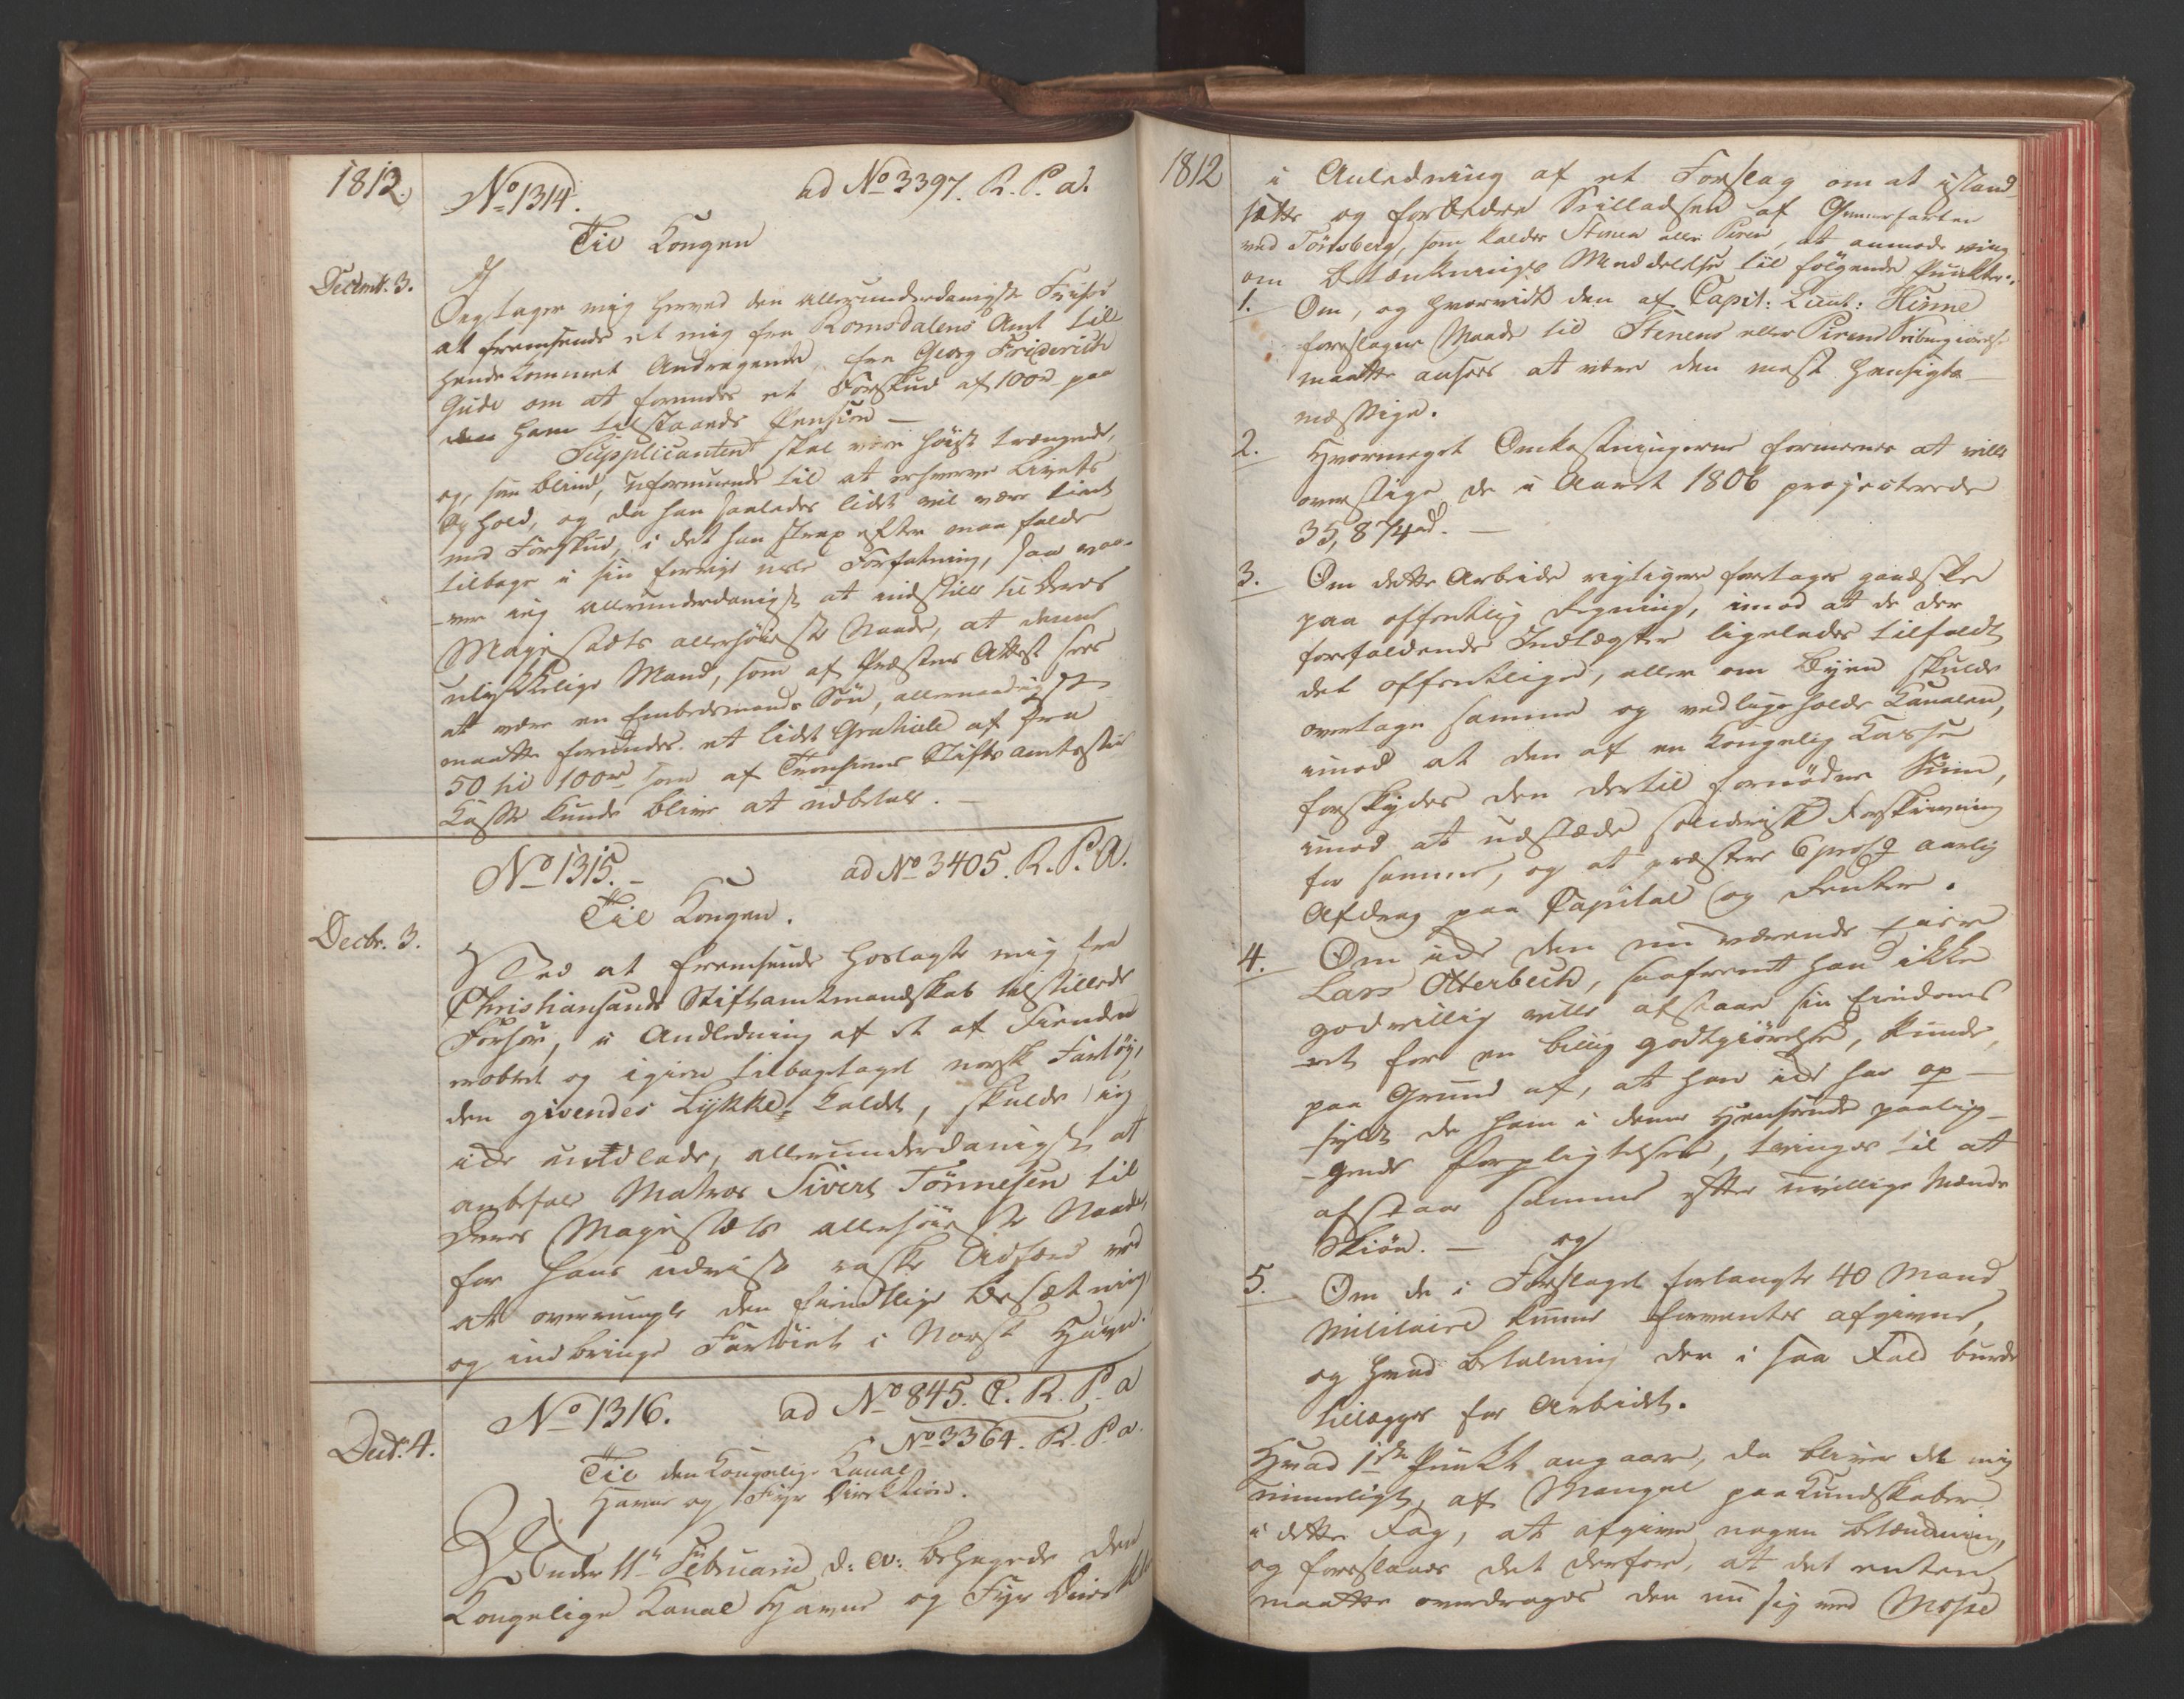 1812.
No 1314.
ad No 3397. R. P. a.
Til Kongen
Decemb. 3.
Jeg tager mig herved den allerunderdanigste Frihed
at fremsende et mig fra Romsdalens Amt til
hændekommet Andragende, fra Georg Friderich
Gude om at forundes et Forskud af 100 rd paa
den ham tilstaaede Pension —
Supplicanten skal være høist trængende,
og, som blind, uformuende til at erhverve Livets
Ophold, og da han saaledes lidet vil være tient
med Forskud, i det han strax efter maa falde
tilbage i sin forrige usle Forfatning, saa vo-
ver jeg allerunderdanigst at indstille til Deres
Majestæts allerhøieste Naade, at denne
ulykkelige Mand, som af Præstens Attest sees
at være en Embedsmands Søn, allernaadigst
maatte forundes et lidet Gratiale af fra
50 til 100 rd som af Tronhiems Stifts amtstue
Kasse kunde blive at udbetale. —
No 1315. —
ad No 3405. R. P. A.
Til Kongen.
Decbr. 3.
Ved at fremsende hoslagte mig fra
Christiansands Stiftamtmandskab tilstillede
Forhør, i Andledning af et af Fienden
erobret og igien tilbagetaget norsk Fartøy,
den givendes Lykke kaldet, skulde jeg
ikke undlade, allerunderdanigst at
anbefale Matros Sivert Tönnesen til
Deres Majestæts allerhøieste Naade,
for hans udviste raske Adfærd ved
at overrumple den fiendtlige Besætning,
og indbringe Fartøiet i Norsk Havn.
No 1316.
ad No 845. C. R. P. a
No 3364. R. P. a.
Dect. 4.
Til den Kongelige Kanal
Havne og Fyr Direktion.
Under 11te Februarii d: A: behagede den
Kongelige Kanal Havne og Fyr Direktion
1812
i Anledning af et Forslag om at istand
sætte og forbedre Seilladsen af
ved Tönsberg, som kaldes Stenen eller Piren, at anmode mig
om Betænknings Meddelelse til følgende Punkter:
1. Om, og hvorvidt den af Capit: Lieut: Kinne
foreslagne Maade til Stenens eller Pirens
maatte ansees at være den mest hensigts-
mæssige.
2. Hvormeget Omkostningerne formenes at ville
overstige de i Aaret 1806 projecterede
35,874 rd. —
3. Om dette Arbeide rigtigere foretages gandske
paa offentlig Regning, imod at de der
forefaldende Indtægter ligeledes tilfaldt
det offentlige, eller om Byen skulde
overtage samme og vedligeholde Kanalen,
imod at den af en Kongelig Kasse
forskydes den dertil fornødne Sum,
imod at udstæde solidarisk Forskrivning
for samme, og at præstere 6 prosC aarlig
Afdrag paa Capital og Renter.
4. Om ikke den nu værende Eier
Lars Otterbech, saafremt han ikke
godvillig ville afstaae sin Eiendoms
ret for en billig godtgiørelse, kunde,
paa Grund af, at han ikke har op-
fyldt de ham i denne Henseende paalig-
gende Forpligtelser, tvinges til at
afstaae samme efter uvillige Mænds
Skiøn. — og
5. Om de i Forslaget forlangte 40 Mand
Militaire kunne forventes afgivne,
og hvad Betalning der i saa Fald burde
tillægges for Arbeidet.
Hvad 1ste Punkt angaaer, da bliver det mig
umueligt, af Mangel paa Kundskaber
i dette Fag, at afgive nogen Betænkning,
og foreslaaes det derfor, at det enten
maatte overdrages den nu sig ved Mosse